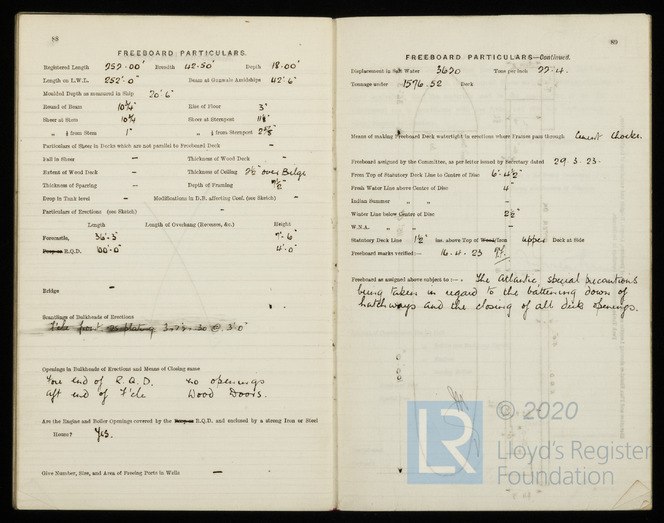 88
FREEBOARD PARTICULARS.
Registered Length 252·00' Breadth 42·50' Depth 18·00'
Length on L.W.L. 252'·0" Beam at Gunwale Amidships 42'·6"
Moulded Depth as measured in Ship 20'·6"
Round of Beam 10¾" Rise of Floor 3"
Sheer at Stem 10¾" Sheer at Sternpost
" ¼ from Stem 1" " ¼ from Sternpost
Particulars of Sheer in Decks which are not parallel to Freeboard Deck –
Fall in Sheer – Thickness of Wood Deck –
Extent of Wood Deck – Thickness of Ceiling 2½" over Bilge
Thickness of Sparring – Depth of Framing 7½"
Drop in Tank level – Modifications in D.B. affecting Coef. (see Sketch) –
Particulars of Erections (see Sketch) –
Length Length of Overhang (Recesses, &c.) Height
Forecastle, 36'·3" 7'·6"
Poop or R.Q.D. 100'·0" 4'·0"
Bridge –
Scantlings of Bulkheads of Erections
F'cle front plating 3·0"
Openings in Bulkheads of Erections and Means of Closing same
Fore end of R.Q.D. no openings
Aft end of F'cle Wood Doors.
Are the Engine and Boiler Openings covered by the Poop or R.Q.D. and enclosed by a strong Iron or Steel
House? Yes.
Give Number, Size, and Area of Freeing Ports in Wells –
89
FREEBOARD PARTICULARS—Continued.
Displacement in Salt Water 3620 Tons per inch 22·4.
Tonnage under 1576.52 Deck
Means of making Freeboard Deck watertight in erections where Frames pass through Cement Chocks.
Freeboard assigned by the Committee, as per letter issued by Secretary dated 29.3.23.
From Top of Statutory Deck Line to Centre of Disc 6'·4½"
Fresh Water Line above Centre of Disc 4"
Indian Summer " " –
Winter Line below Centre of Disc 2½"
W.N.A. " " –
Statutory Deck Line 1½" ins. above Top of Wood/Iron upper Deck at Side
Freeboard marks verified:— 16.4.23
Freeboard as assigned above subject to:— The Atlantic, special precautions
being taken in regard to the battening down of
hatchways and the closing of all deck openings.
LR © 2020
Lloyd's Register
Foundation